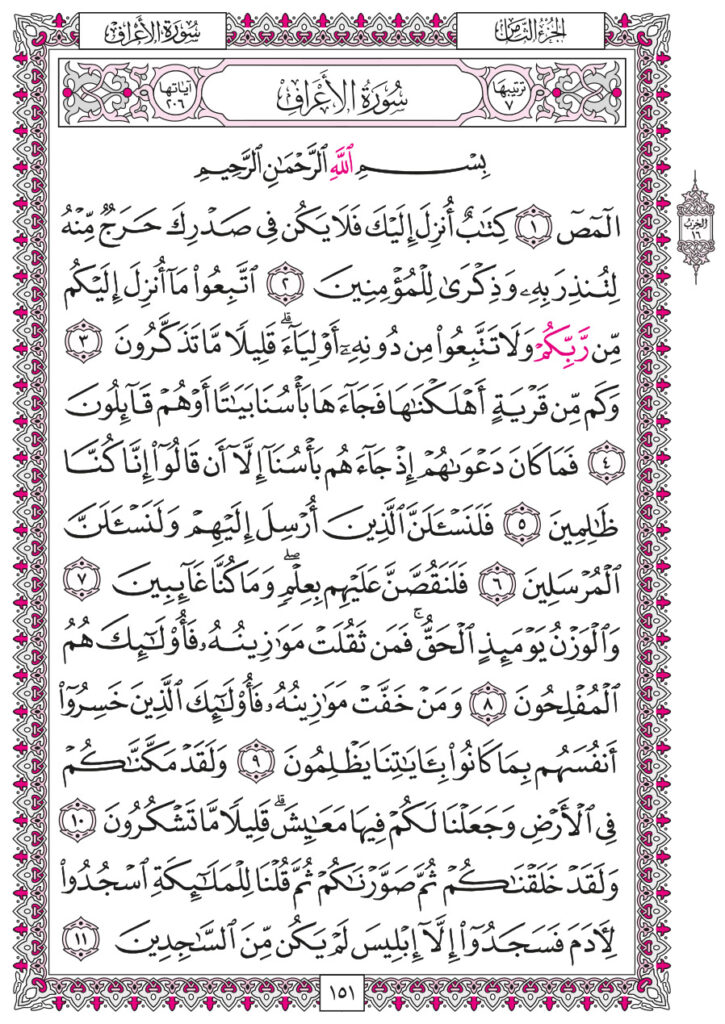 الجزء الثامن
سورة الأعراف
ترتيبها ٧
سُورَةُ الأَعْرَافِ
آياتها ٢٠٦
بِسْمِ اللَّهِ الرَّحْمَٰنِ الرَّحِيمِ
الٓمٓصٓ ١ كِتَٰبٌ أُنزِلَ إِلَيْكَ فَلَا يَكُن فِى صَدْرِكَ حَرَجٌ مِّنْهُ
الحزب ١٦
لِتُنذِرَ بِهِۦ وَذِكْرَىٰ لِلْمُؤْمِنِينَ ٢ ٱتَّبِعُوا۟ مَآ أُنزِلَ إِلَيْكُم
مِّن رَّبِّكُمْ وَلَا تَتَّبِعُوا۟ مِن دُونِهِۦٓ أَوْلِيَآءَ ۗ قَلِيلًا مَّا تَذَكَّرُونَ ٣
وَكَم مِّن قَرْيَةٍ أَهْلَكْنَٰهَا فَجَآءَهَا بَأْسُنَا بَيَٰتًا أَوْ هُمْ قَآئِلُونَ
٤ فَمَا كَانَ دَعْوَىٰهُمْ إِذْ جَآءَهُم بَأْسُنَآ إِلَّآ أَن قَالُوٓا۟ إِنَّا كُنَّا
ظَٰلِمِينَ ٥ فَلَنَسْـَٔلَنَّ ٱلَّذِينَ أُرْسِلَ إِلَيْهِمْ وَلَنَسْـَٔلَنَّ
ٱلْمُرْسَلِينَ ٦ فَلَنَقُصَّنَّ عَلَيْهِم بِعِلْمٍ ۖ وَمَا كُنَّا غَآئِبِينَ ٧
وَٱلْوَزْنُ يَوْمَئِذٍ ٱلْحَقُّ ۚ فَمَن ثَقُلَتْ مَوَٰزِينُهُۥ فَأُو۟لَٰٓئِكَ هُمُ
ٱلْمُفْلِحُونَ ٨ وَمَنْ خَفَّتْ مَوَٰزِينُهُۥ فَأُو۟لَٰٓئِكَ ٱلَّذِينَ خَسِرُوٓا۟
أَنفُسَهُم بِمَا كَانُوا۟ بِـَٔايَٰتِنَا يَظْلِمُونَ ٩ وَلَقَدْ مَكَّنَّٰكُمْ
فِى ٱلْأَرْضِ وَجَعَلْنَا لَكُمْ فِيهَا مَعَٰيِشَ ۗ قَلِيلًا مَّا تَشْكُرُونَ ١٠
وَلَقَدْ خَلَقْنَٰكُمْ ثُمَّ صَوَّرْنَٰكُمْ ثُمَّ قُلْنَا لِلْمَلَٰٓئِكَةِ ٱسْجُدُوا۟
لِـَٔادَمَ فَسَجَدُوٓا۟ إِلَّآ إِبْلِيسَ لَمْ يَكُن مِّنَ ٱلسَّٰجِدِينَ ١١
١٥١